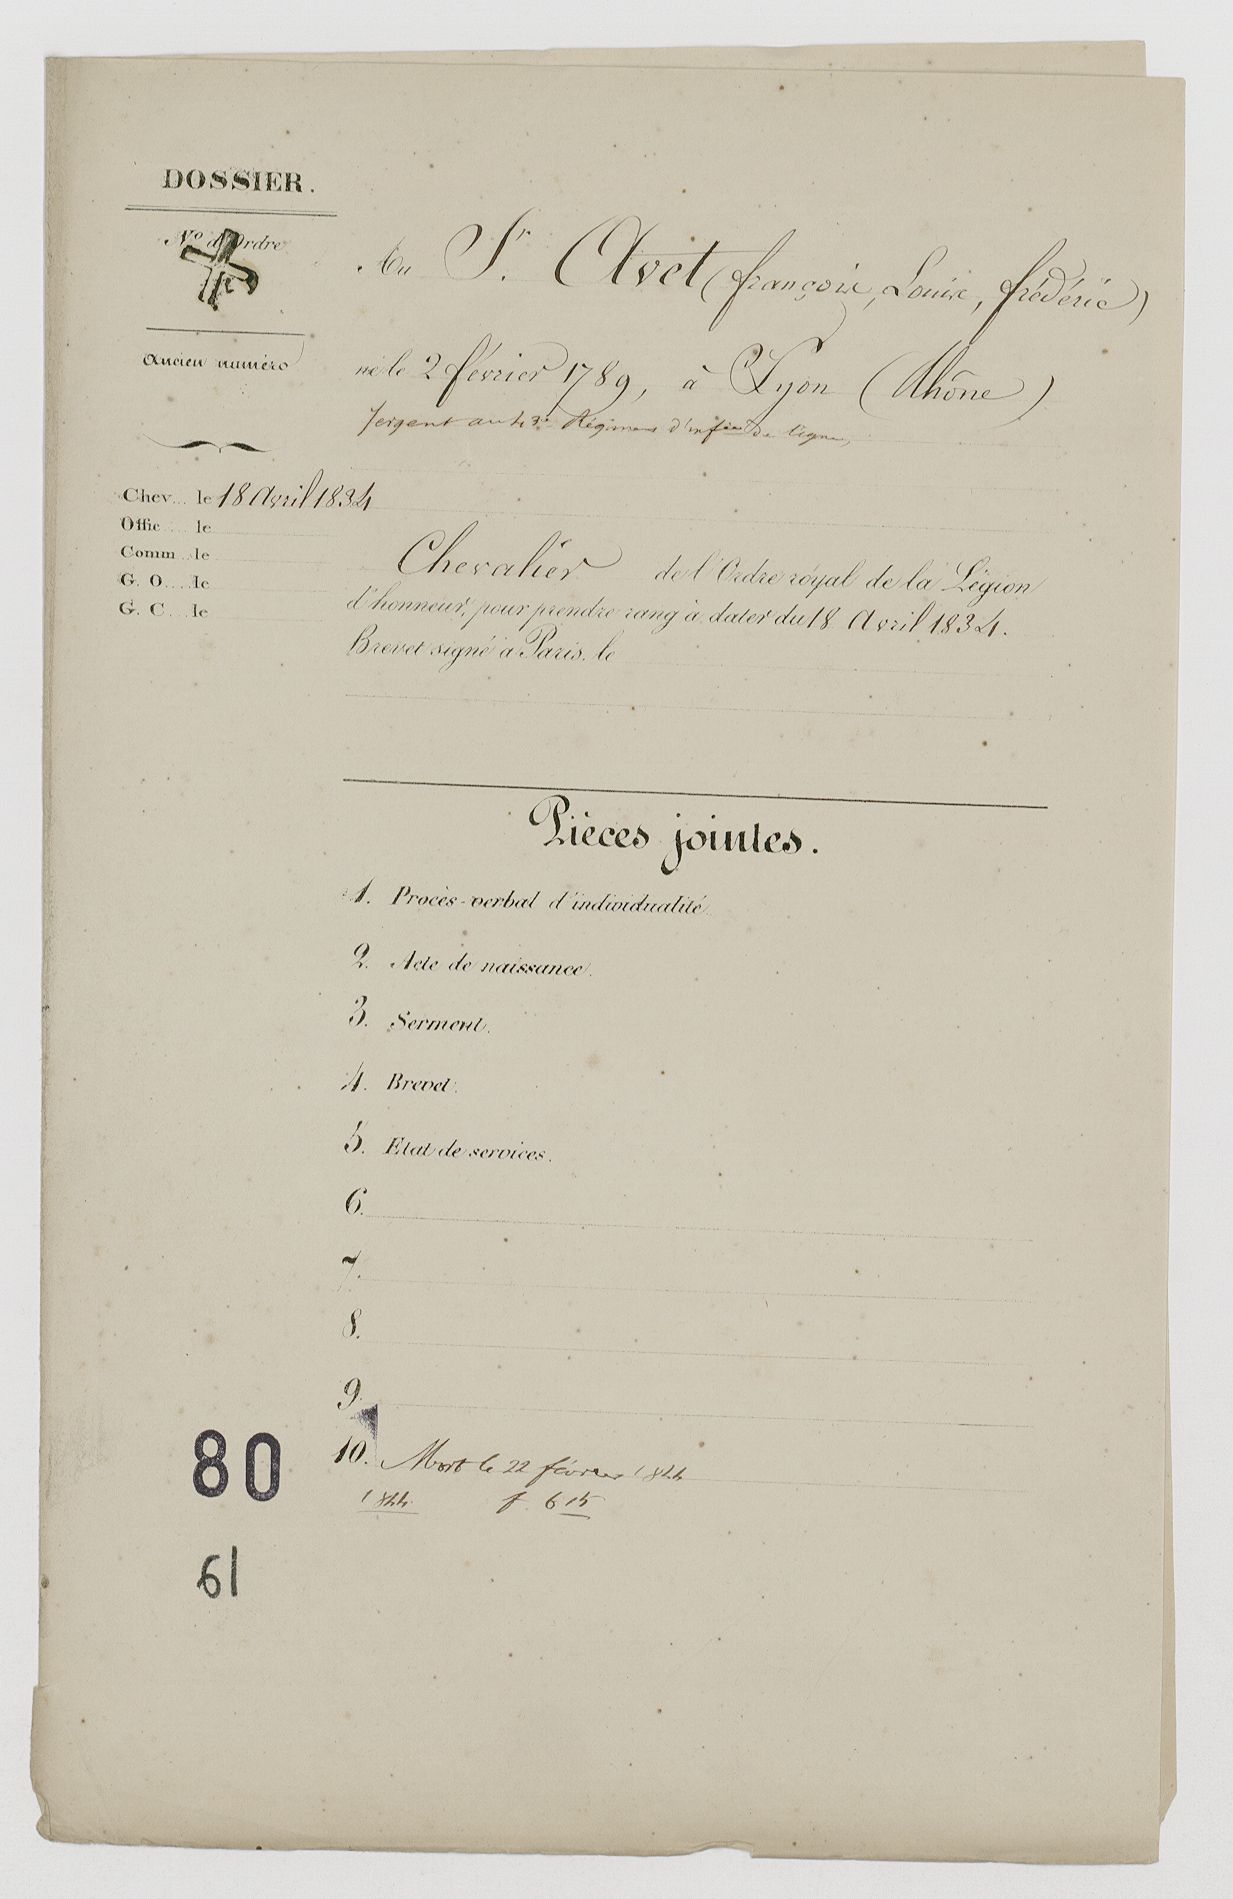 DOSSIER.
No d'Ordre
Ancien numéro
Chev... le 18 Avril 1834
Offic.... le
Comm.. le
G. O.... le
G. C... le
Du Sr. Avet (françois, Louis, frédéric)
né le 2 février 1789, à Lyon (Rhône)
Sergent au 43e Régiment d'infrie de ligne,
Chevalier de l'Ordre royal de la Légion
d'honneur, pour prendre rang à dater du 18 Avril 1834.
Brevet signé à Paris, le
Pièces jointes.
1. Procès-verbal d'individualité.
2. Acte de naissance.
3. Serment.
4. Brevet.
5. Etat de services.
6.
7.
8.
9.
10. Mort le 22 février 1844
1844 f. 615
80
61